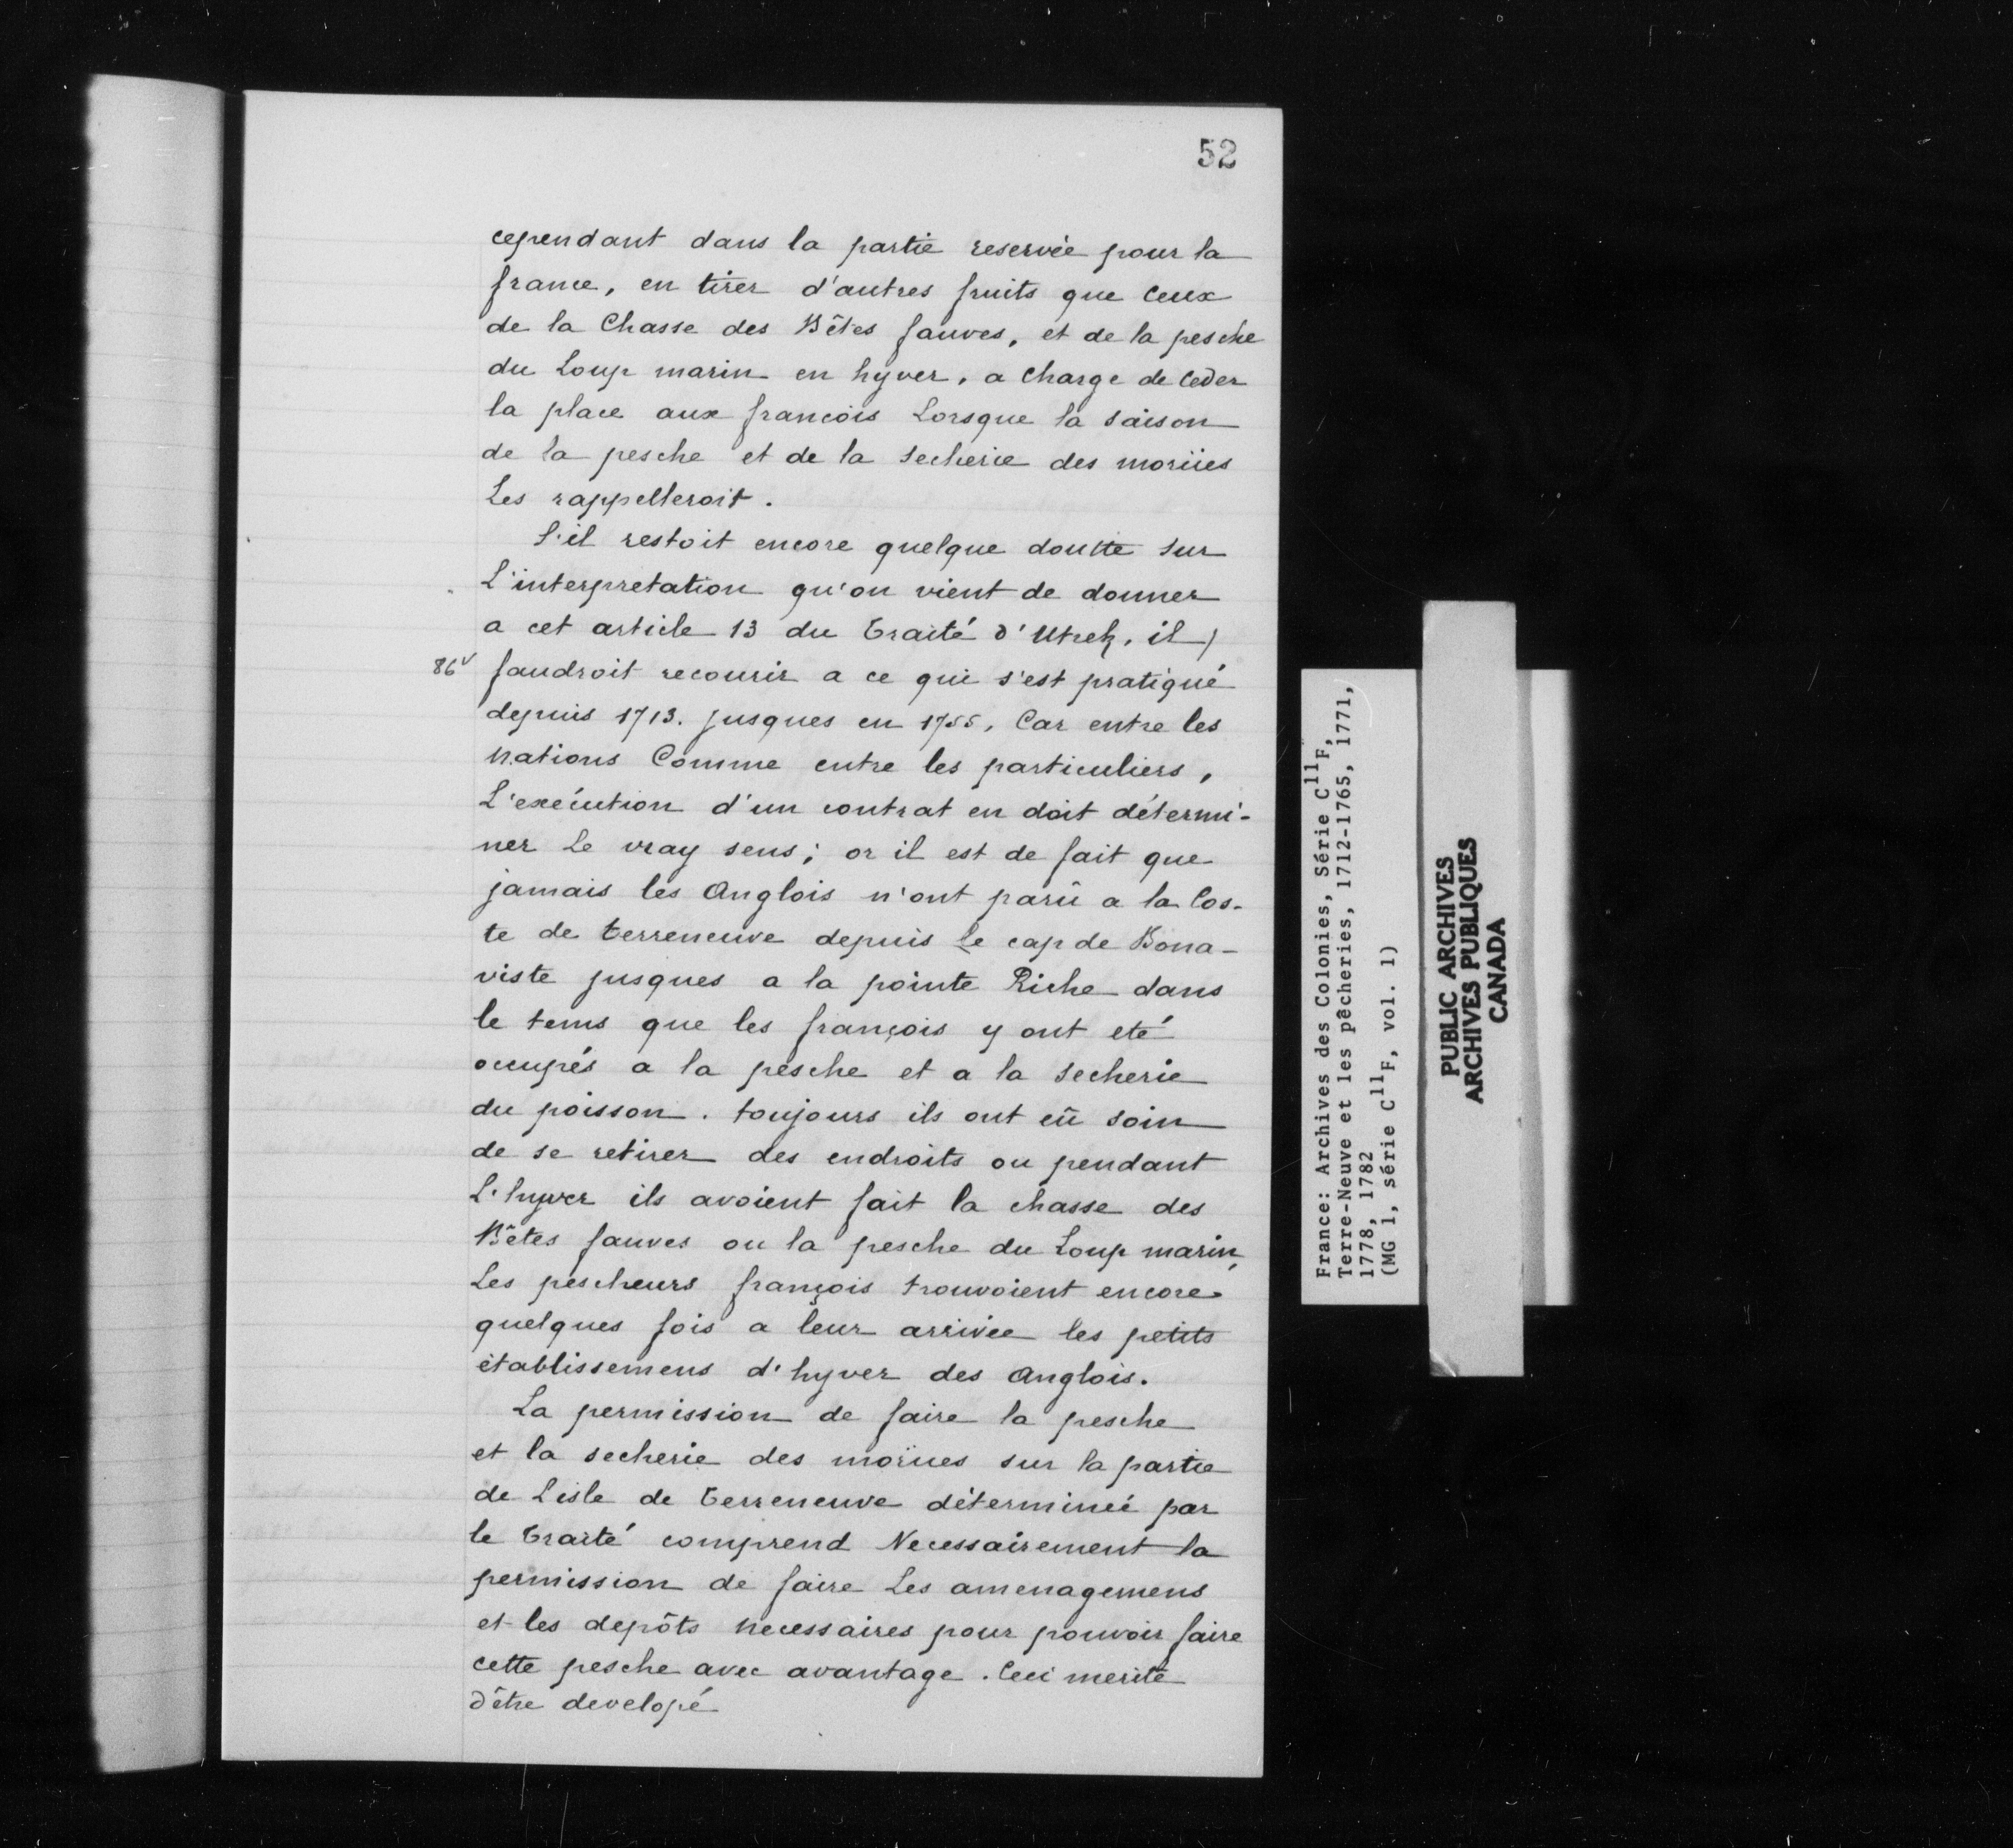 52
cependant dans la partie reservée pour la
france, en tirer d'autres fruits que ceux
de la Chasse des Bêtes fauves, et de la pesche
du Loup marin en hyver, a charge de ceder
la place aux francois Lorsque la saison
de la pesche et de la secherie des moriies
Les rappelleroit.
S'il restoit encore quelque doutte sur
L'interpretation qu'on vient de donner
a cet article 13 du Traité d'Utrek, il /
86v faudroit recourir a ce qui s'est pratiqué
depuis 1713. jusques en 1755, Car entre les
nations Comme entre les particuliers,
L'exécution d'un contrat en doit détermi-
ner Le vray sens; or il est de fait que
jamais les Anglois n'ont parû a la Cos-
te de terreneuve depuis Le cap de Bona-
viste jusques a la pointe Riche dans
le tems que les françois y ont eté
occupés a la pesche et a la secherie
du poisson. toujours ils ont eû soin
de se retirer des endroits ou pendant
L'hyver ils avoient fait la chasse des
Bêtes fauves ou la pesche du Loup marin,
Les pescheurs françois trouvoient encore
quelques fois a leur arrivée les petits
établissemens d'hyver des Anglois.
La permission de faire la pesche
et la secherie des moriies sur la partie
de Lisle de Terreneuve déterminée par
le Traité comprend Necessairement la
permission de faire Les amenagemens
et les depôts necessaires pour pouvoir faire
cette pesche avec avantage. Ceci merite
d'être developé
France: Archives des Colonies, Série C11F,
Terre-Neuve et les pêcheries, 1712-1765, 1771,
1778, 1782
(MG 1, série C11F, vol. 1)
PUBLIC ARCHIVES
ARCHIVES PUBLIQUES
CANADA